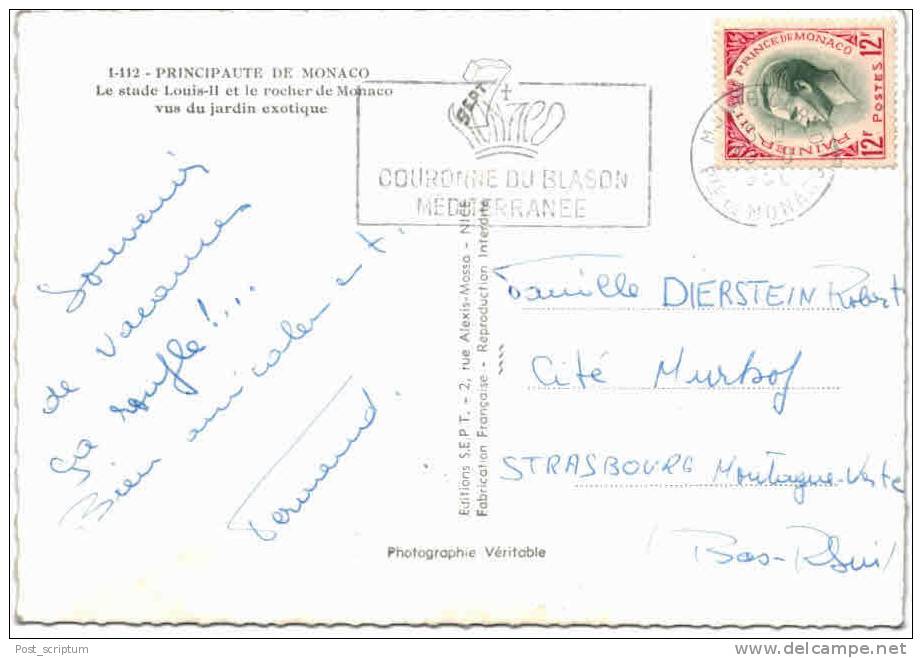 1-112 - PRINCIPAUTE DE MONACO
Le stade Louis-II et le rocher de Monaco
vus du jardin exotique
SEPT
COURONNE DU BLASON
MEDITERRANEE
RAINIER III PRINCE DE MONACO
12F POSTES 12F
Souvenir
de vacances
ça ronfle !...
Bien amicalement.
Fernand.
Editions S.E.P.T. - 2, rue Alexis-Mossa - NICE
Fabrication Française - Reproduction Interdite
Famille DIERSTEIN Robert
Cité Murhof
STRASBOURG Montagne-Verte
(Bas-Rhin)
Photographie Véritable
Post_scriptum
delcampe.net